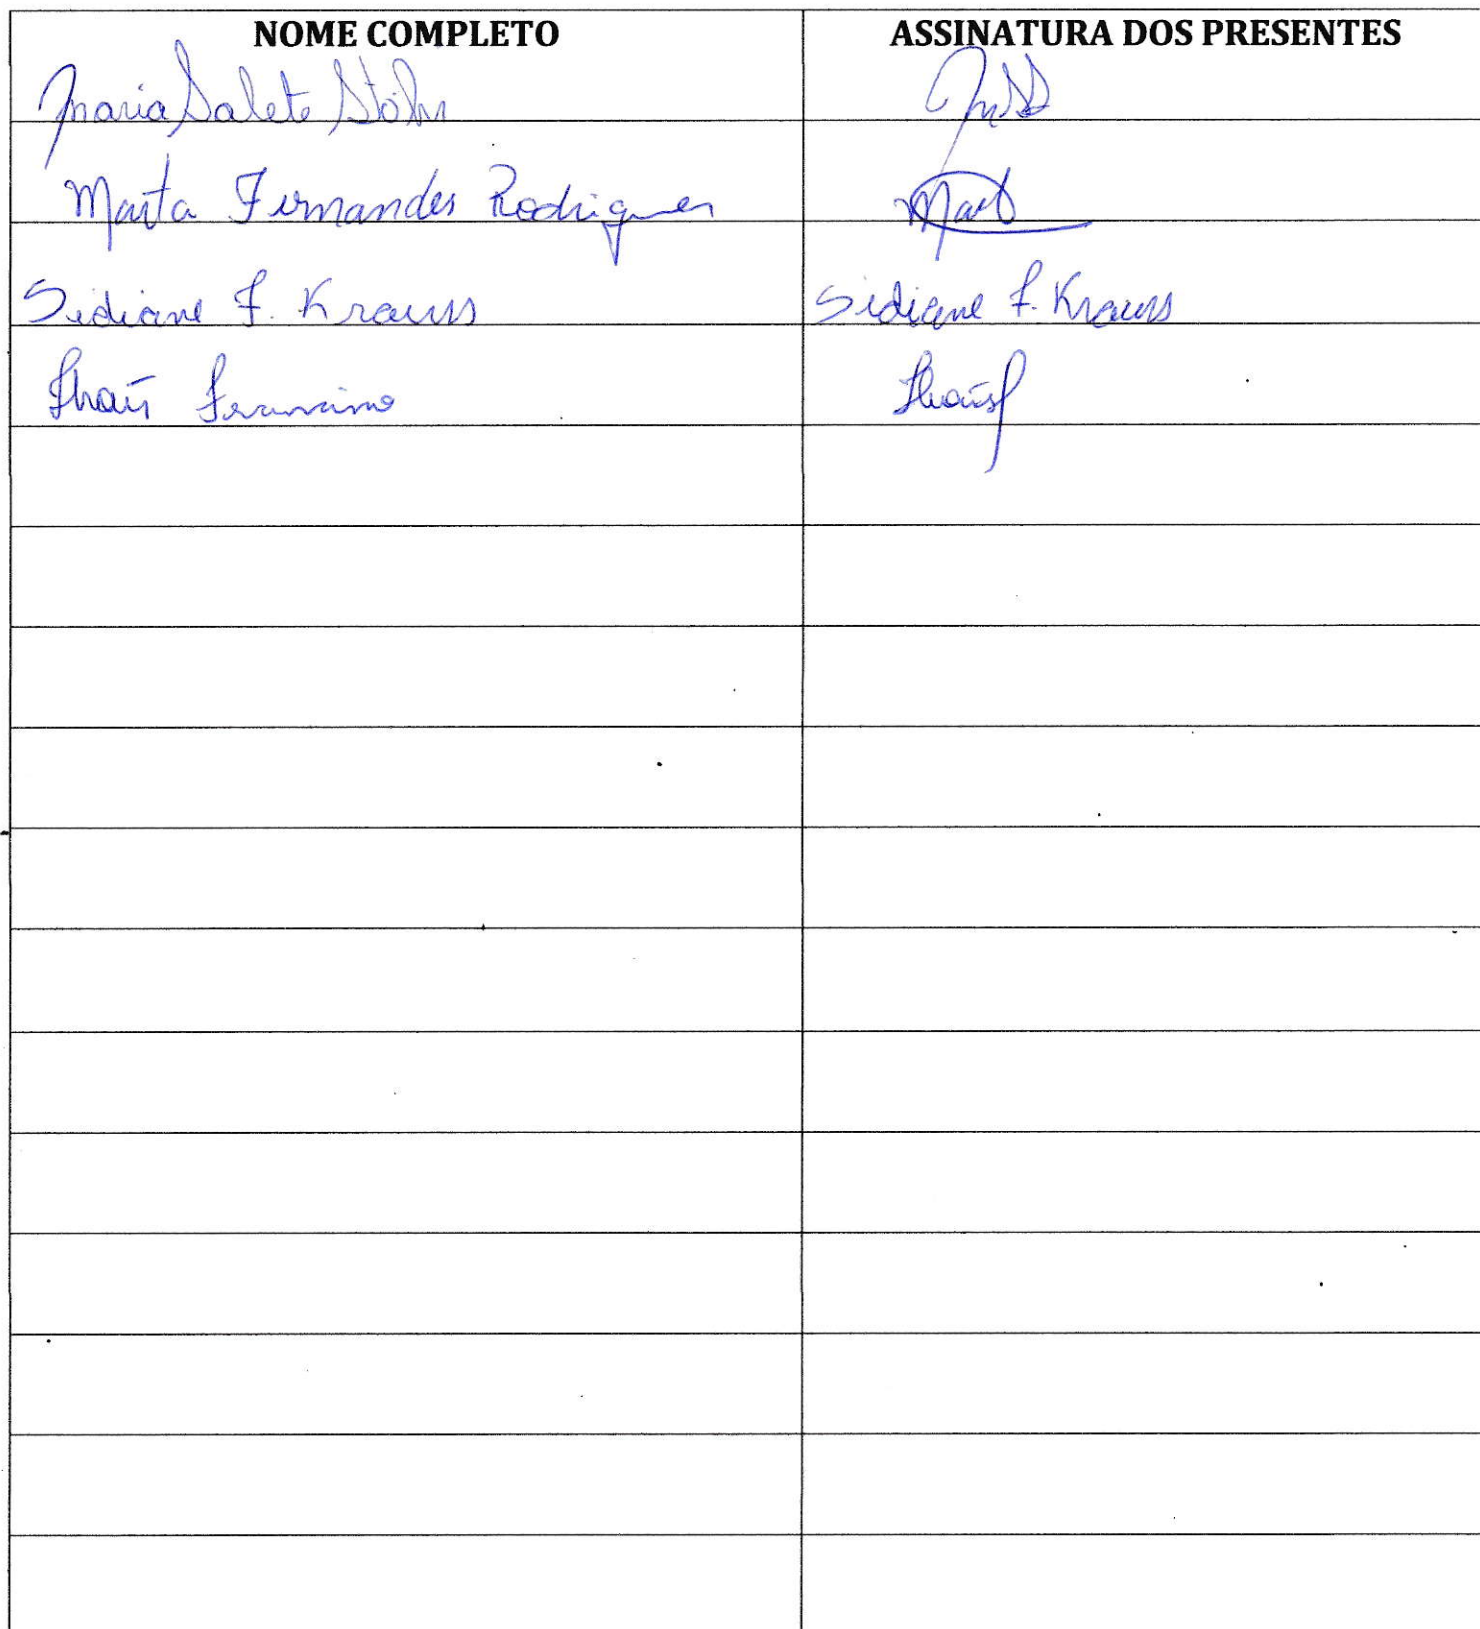 NOME COMPLETO ASSINATURA DOS PRESENTES
Maria Salete Stöhr
Marta Fernandes Rodrigues
Sidiane F. Krauss Sidiane F. Krauss
Thaís